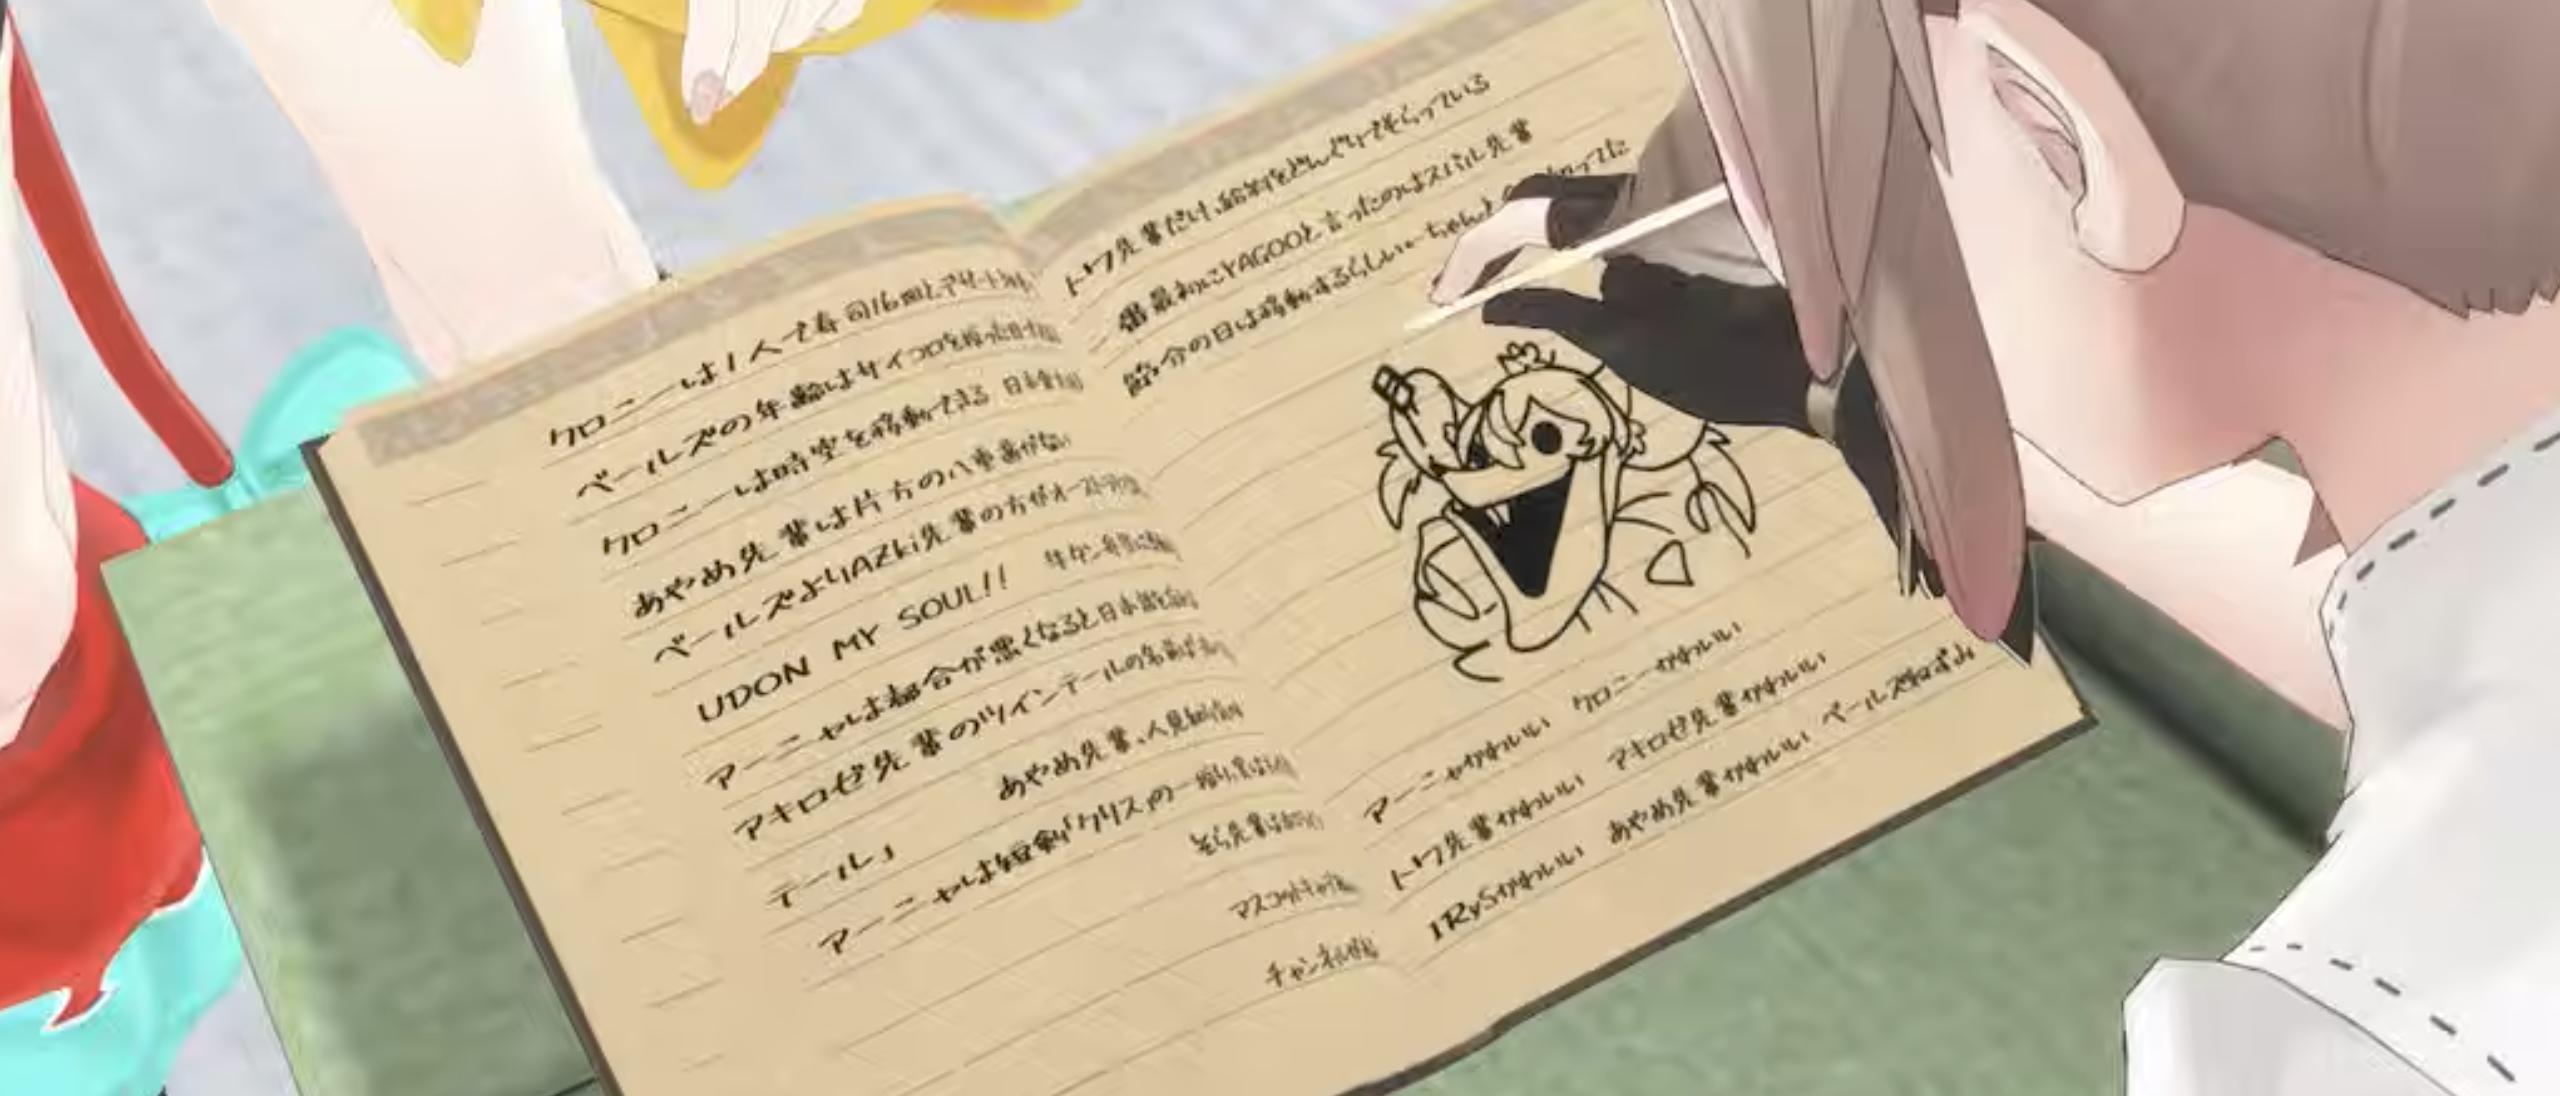 クロニーは1人で寿司16皿とデザート
ベールズの年齢はサイコロを振った
クロニーは時空を移動できる 日本
あやめ先輩は片方の八重歯がない
ベールズよりAZKi先輩の方がオースト
UDON MY SOUL!! 牛タン弁当
アーニャは都合が悪くなると日本語
アキロゼ先輩のツインテールの名前は
テール」 あやめ先輩、人見知り
アーニャは短剣「クリス」の
そら先輩は
マスコットキャラ
チャンネル
トワ先輩だけ、給料をどんぐりでもらっている
番最初にYAGOOと言ったのはスバル先輩
紹介の日は移動するらしい ちゃんと 知ってた
アーニャかわいい クロニーかわいい
トワ先輩かわいい アキロゼ先輩かわいい
IRySかわいい あやめ先輩かわいい ベールズねずみ